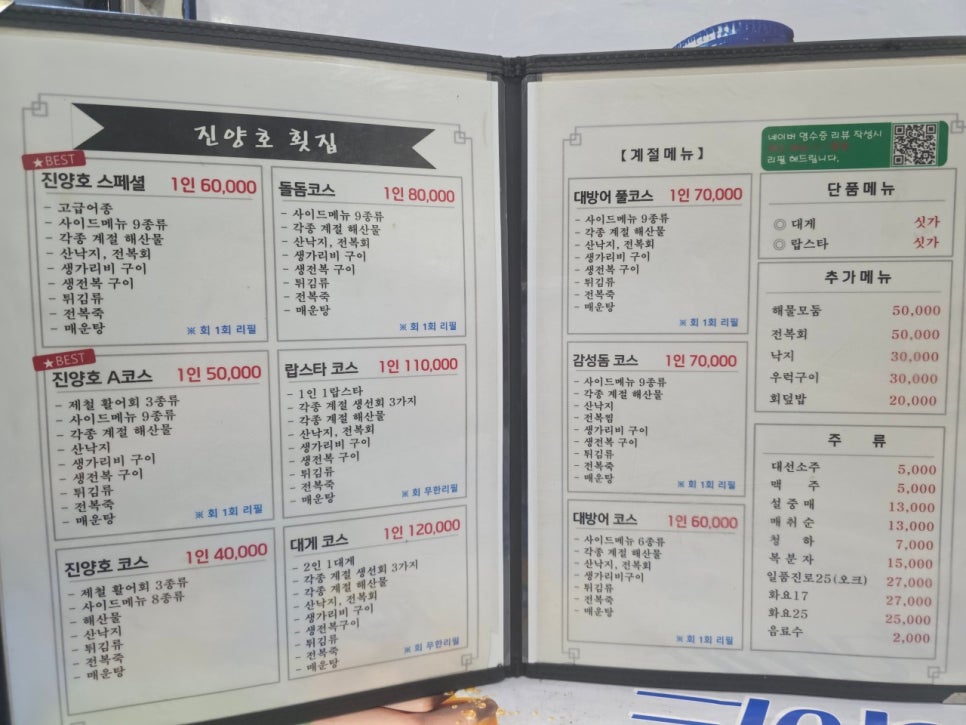 진양호 횟집
★BEST
진양호 스페셜 1인 60,000
- 고급어종
- 사이드메뉴 9종류
- 각종 계절 해산물
- 산낙지, 전복회
- 생가리비 구이
- 생전복 구이
- 튀김류
- 전복죽
- 매운탕
※ 회 1회 리필
돌돔코스 1인 80,000
- 사이드메뉴 9종류
- 각종 계절 해산물
- 산낙지, 전복회
- 생가리비 구이
- 생전복 구이
- 튀김류
- 전복죽
- 매운탕
※ 회 1회 리필
★BEST
진양호 A코스 1인 50,000
- 제철 활어회 3종류
- 사이드메뉴 9종류
- 각종 계절 해산물
- 산낙지
- 생가리비 구이
- 생전복 구이
- 튀김류
- 전복죽
- 매운탕
※ 회 1회 리필
랍스타 코스 1인 110,000
- 1인 1랍스타
- 각종 계절 생선회 3가지
- 각종 계절 해산물
- 산낙지, 전복회
- 생가리비 구이
- 생전복 구이
- 튀김류
- 전복죽
- 매운탕
※ 회 무한리필
진양호 코스 1인 40,000
- 제철 활어회 3종류
- 사이드메뉴 8종류
- 해산물
- 산낙지
- 튀김류
- 전복죽
- 매운탕
대게 코스 1인 120,000
- 2인 1대게
- 각종 계절 생선회 3가지
- 각종 계절 해산물
- 산낙지, 전복회
- 생가리비 구이
- 생전복구이
- 튀김류
- 전복죽
- 매운탕
※ 회 무한리필
【계절메뉴】
대방어 풀코스 1인 70,000
- 사이드메뉴 9종류
- 각종 계절 해산물
- 산낙지, 전복회
- 생가리비 구이
- 생전복 구이
- 튀김류
- 전복죽
- 매운탕
※ 회 1회 리필
감성돔 코스 1인 70,000
- 사이드메뉴 9종류
- 각종 계절 해산물
- 산낙지
- 전복찜
- 생가리비 구이
- 생전복 구이
- 튀김류
- 전복죽
- 매운탕
※ 회 1회 리필
대방어 코스 1인 60,000
- 사이드메뉴 6종류
- 각종 계절 해산물
- 산낙지, 전복회
- 생가리비구이
- 튀김류
- 전복죽
- 매운탕
※ 회 1회 리필
네이버 영수증 리뷰 작성시
리필 해드립니다.
단품메뉴
◎ 대게 싯가
◎ 랍스타 싯가
추가메뉴
해물모둠 50,000
전복회 50,000
낙지 30,000
우럭구이 30,000
회덮밥 20,000
주 류
대선소주 5,000
맥 주 5,000
설중매 13,000
매취순 13,000
청 하 7,000
복분자 15,000
일품진로25(오크) 27,000
화요17 27,000
화요25 25,000
음료수 2,000